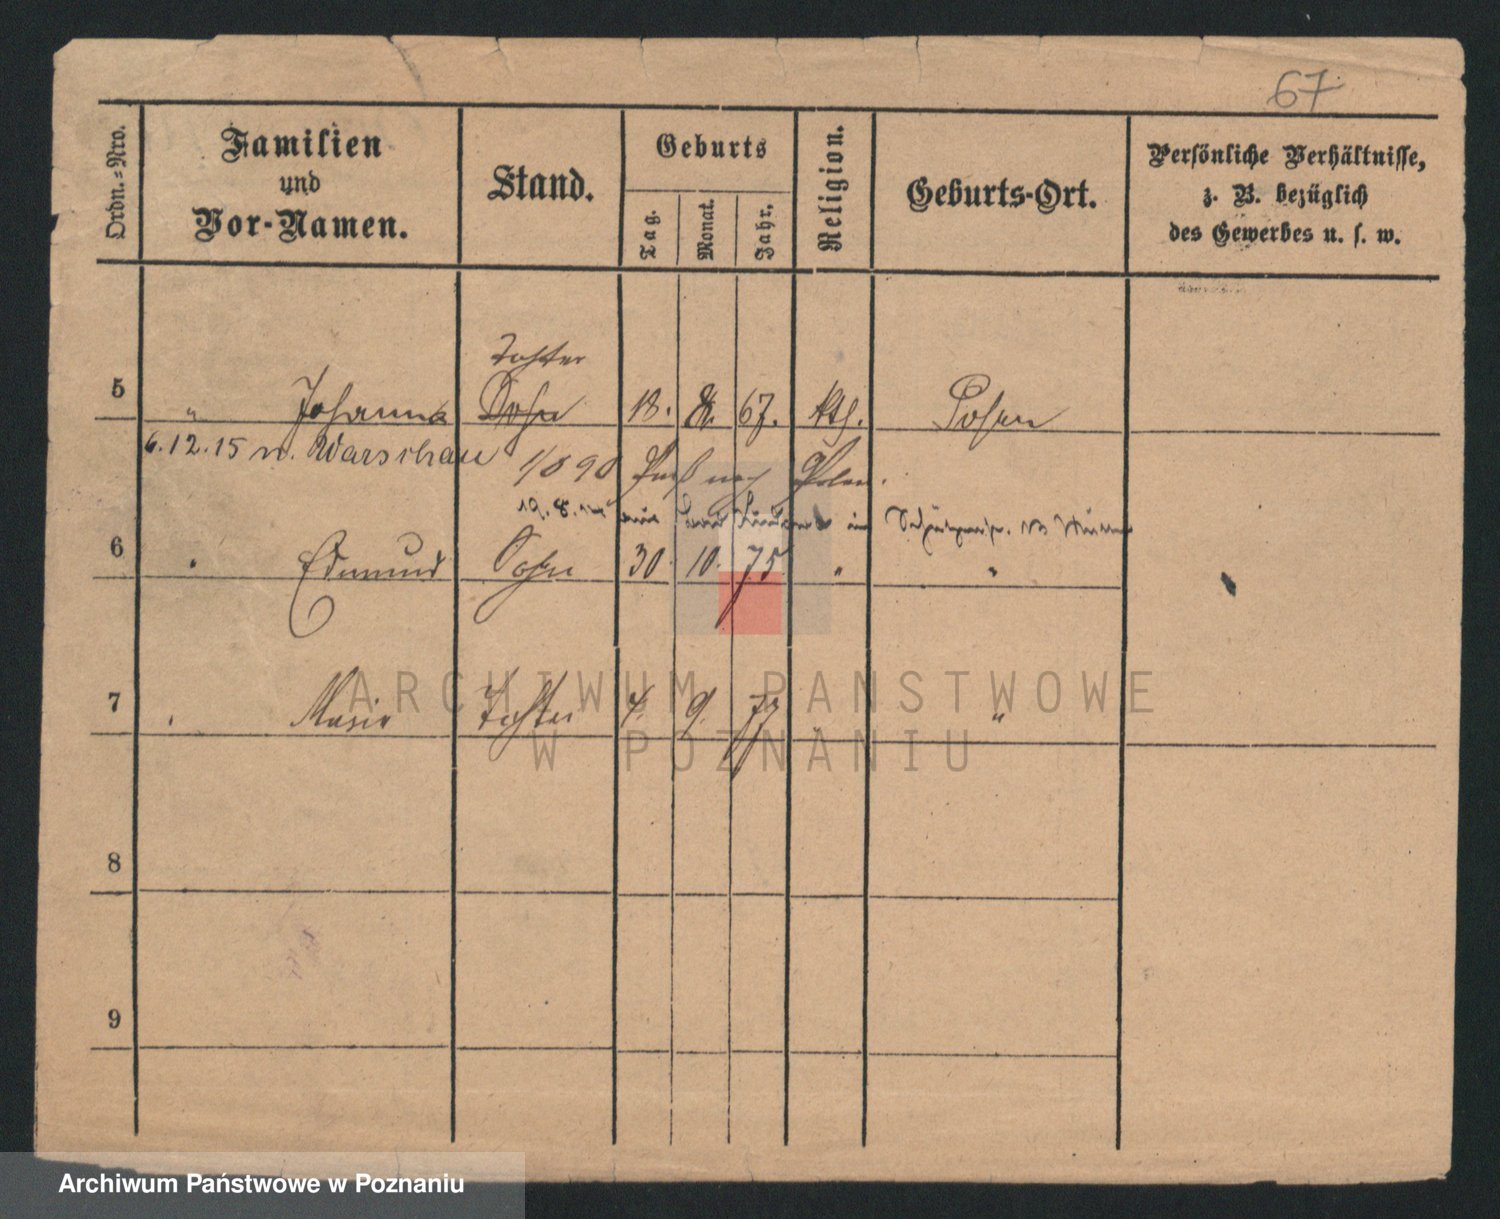 67
Ordn.-Nro.
Familien
und
Vor-Namen.
Stand.
Geburts
Tag.
Monat.
Jahr.
Religion.
Geburts-Ort.
Persönliche Verhältnisse,
z. B. bezüglich
des Gewerbes u. s. w.
Tochter
5 " Johanna Sohn 18. 8. 67. kth. Posen
6.12.15 n. Warschau
1/8 90 Paß nach Polen.
19.8.
6 " Edmund Sohn 30. 10. 75 " "
7 " Marie Tochter 4. 9. 77 "
8
9
ARCHIWUM PAŃSTWOWE
W POZNANIU
Archiwum Państwowe w Poznaniu